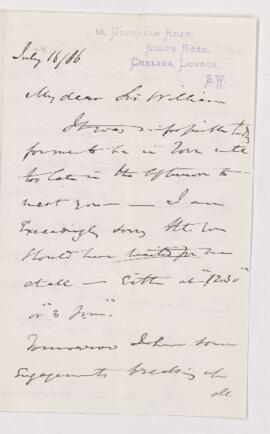 10, Uverdale Road,
King's Road,
Chelsea, London,
S.W.
July 16/86
My dear Sir William
It was impossible today
for me to be in Town until
too late in the afternoon to
meet you — I am
Exceedingly sorry that you
should have waited for me
at all — Either at "12.30"
or "3 p.m."
Tomorrow I have some
Engagements breaking up
all